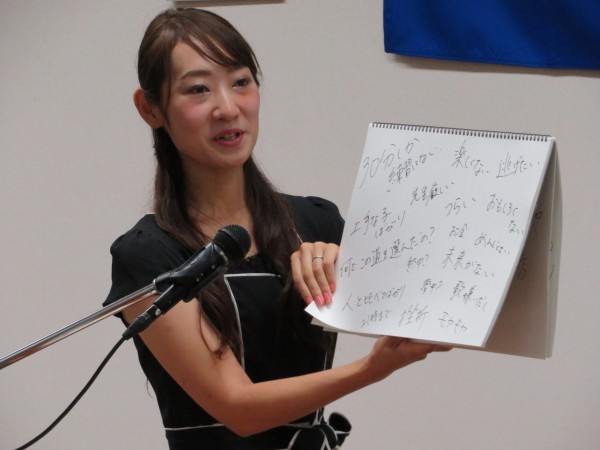 30分しか 楽しくない 逃げたい
練習しない 先生厳しい
上手な子ばかり つらい おもしろくない
何でこの道を選んだの? お金 めんどくさい
未来がない
人と比べてばかり
21時まで 挫折 モヤモヤ